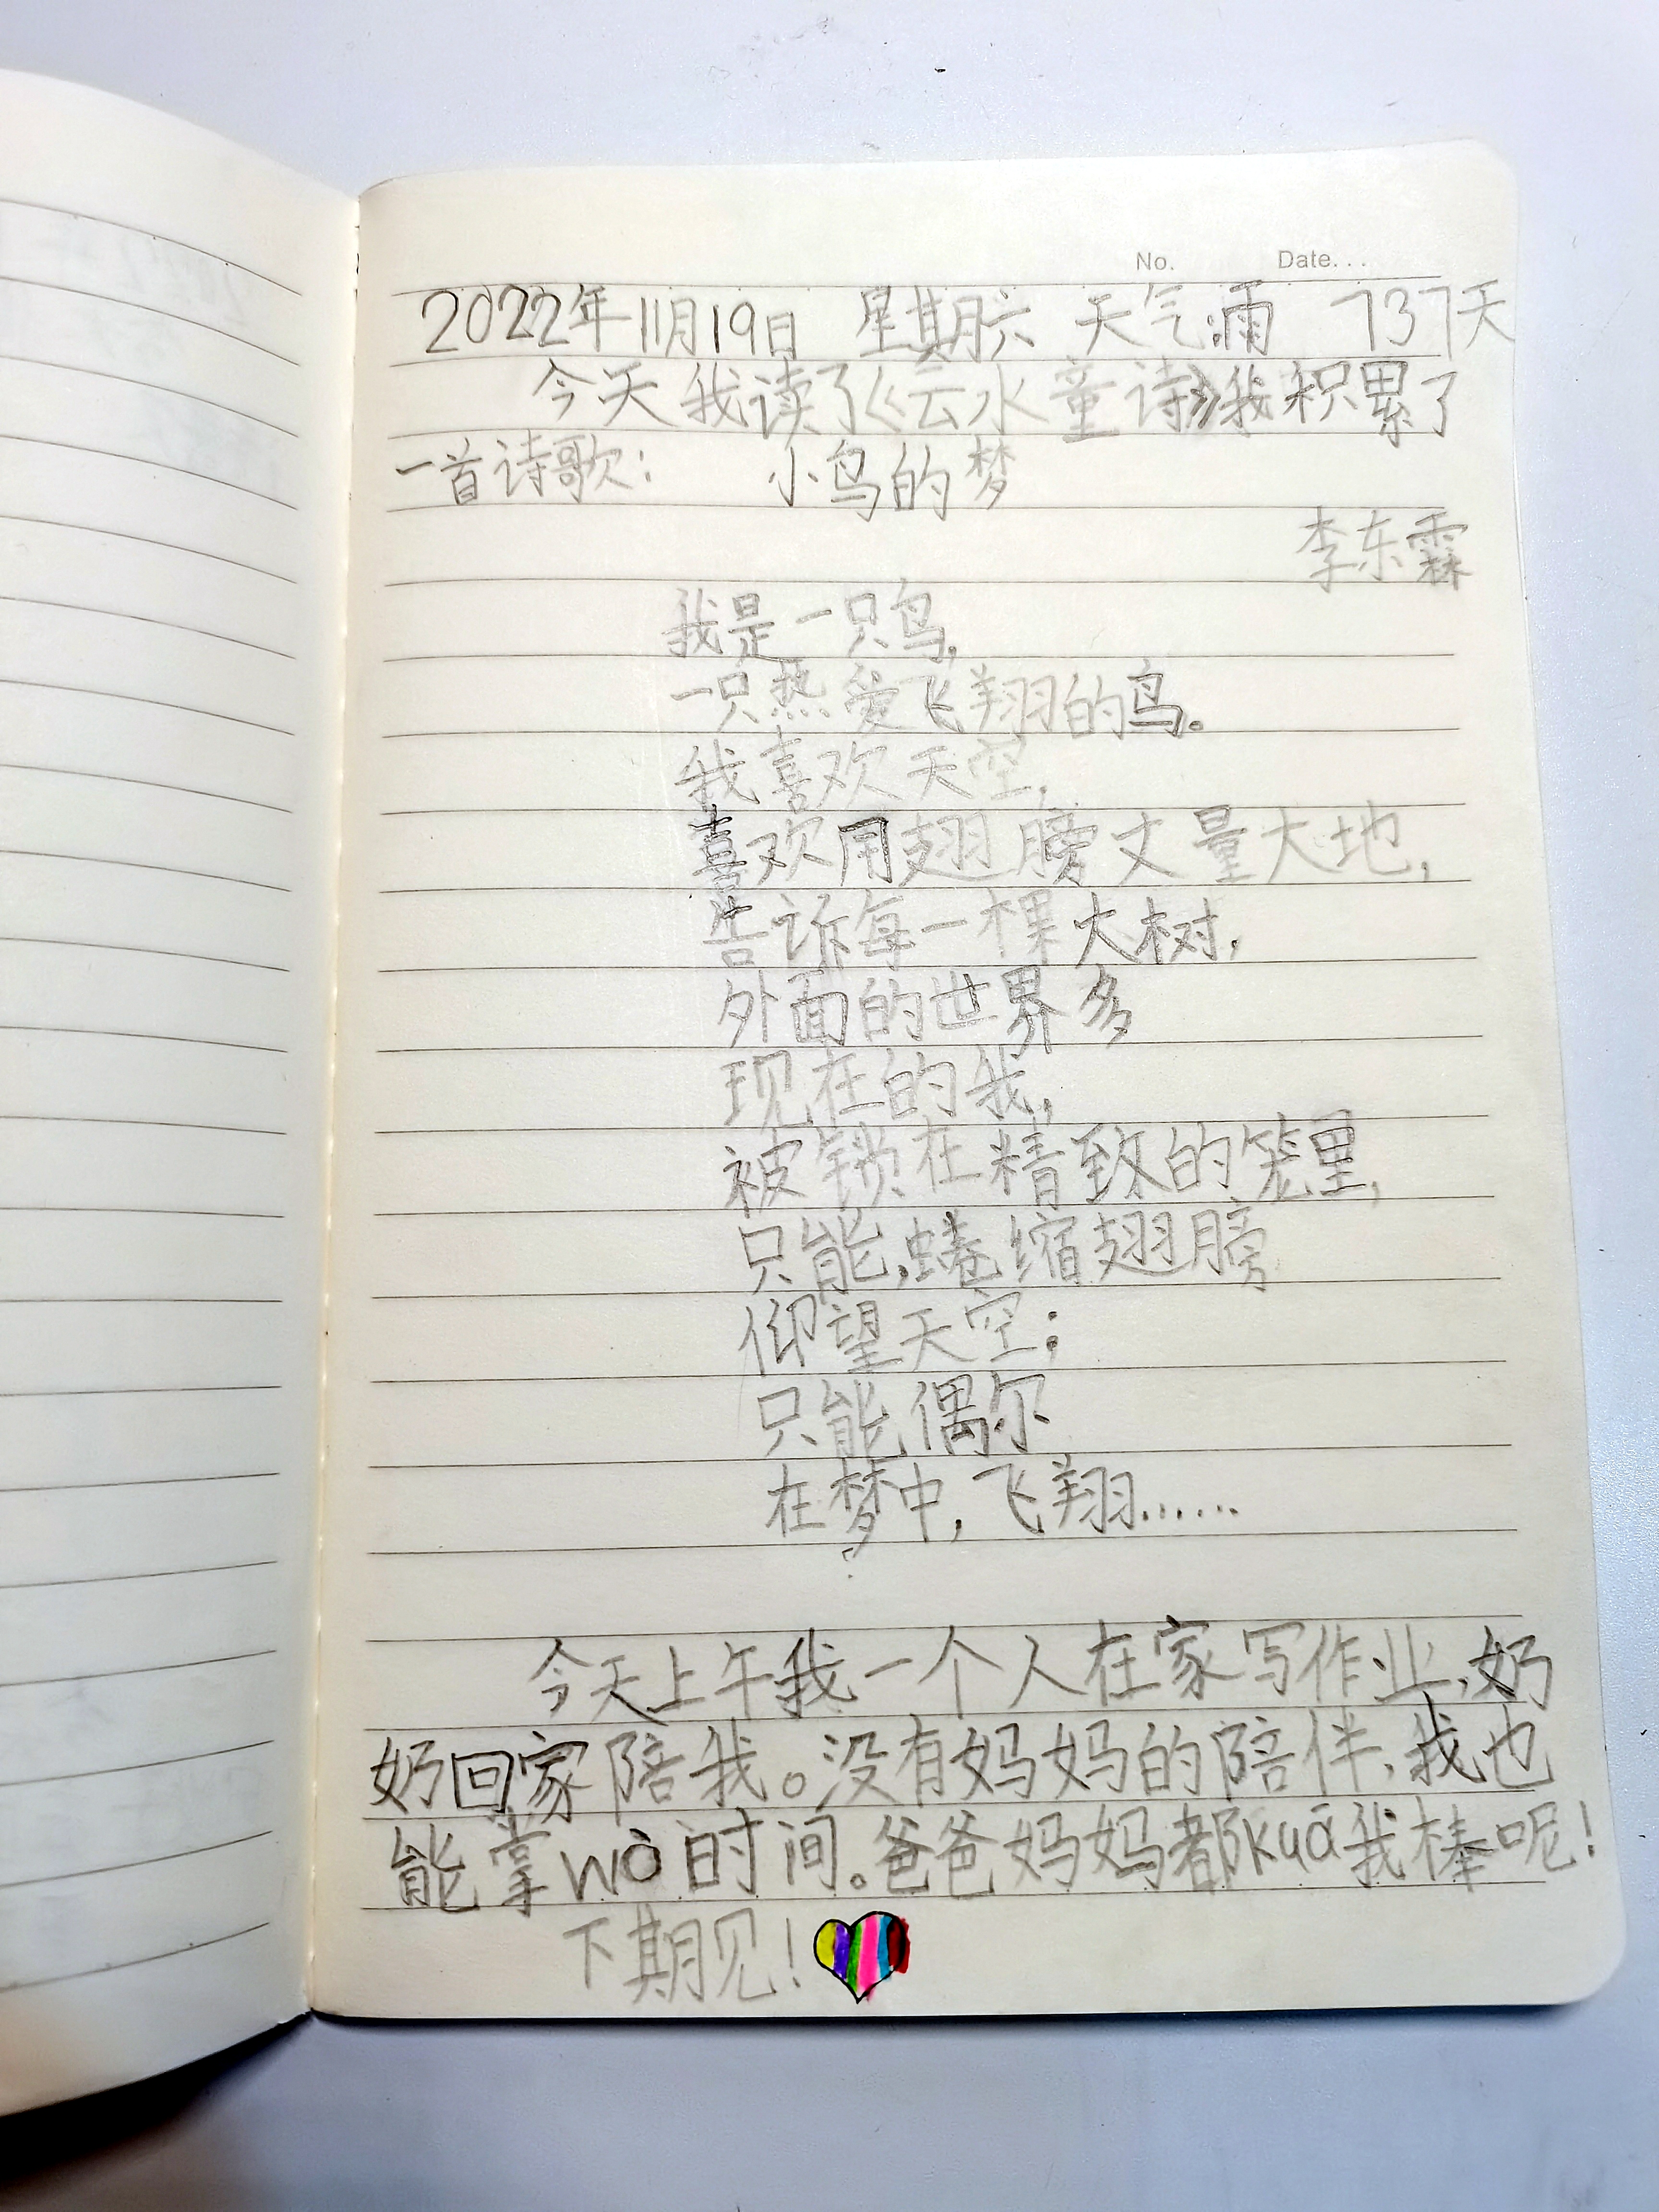 No. Date...
2022年11月19日 星期六 天气:雨 737天
今天我读了《云水童诗》我积累了
一首诗歌: 小鸟的梦
李东霖
我是一只鸟,
一只热爱飞翔的鸟。
我喜欢天空,
喜欢用翅膀丈量大地,
告诉每一棵大树,
外面的世界多
现在的我,
被锁在精致的笼里,
只能,蜷缩翅膀
仰望天空;
只能偶尔
在梦中,飞翔……
今天上午我一个人在家写作业,奶
奶回家陪我。没有妈妈的陪伴,我也
能掌wò时间。爸爸妈妈都kuā我棒呢!
下期见!